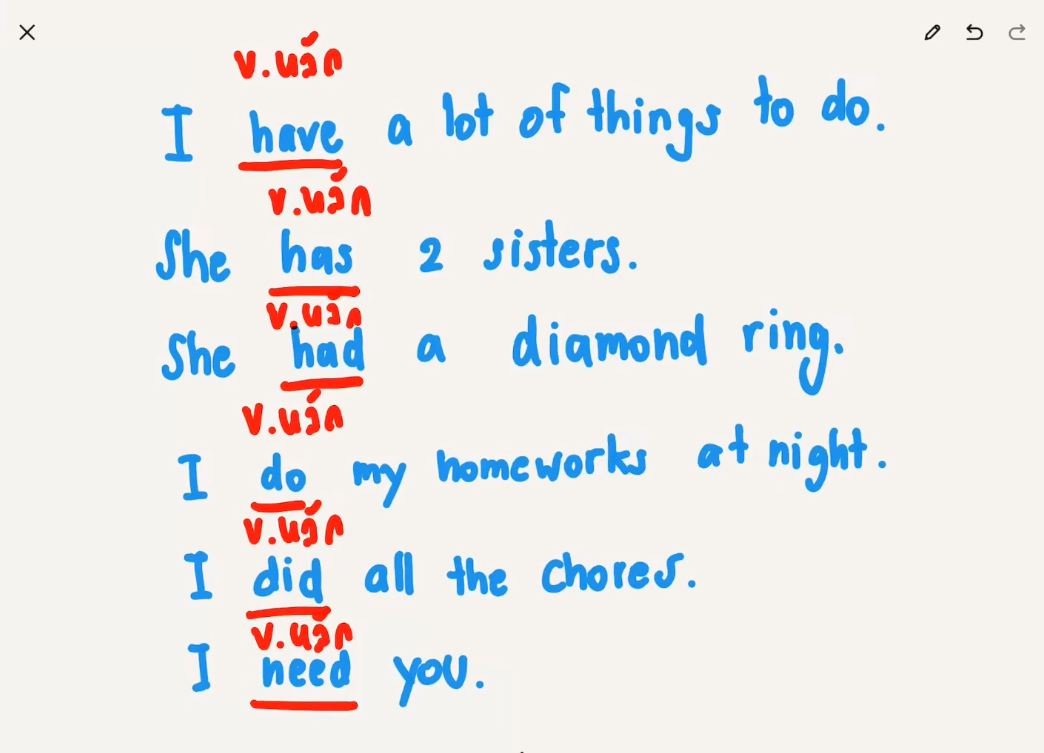 v.หลัก
I have a lot of things to do.
v.หลัก
She has 2 sisters.
v.หลัก
She had a diamond ring.
v.หลัก
I do my homeworks at night.
v.หลัก
I did all the chores.
v.หลัก
I need you.